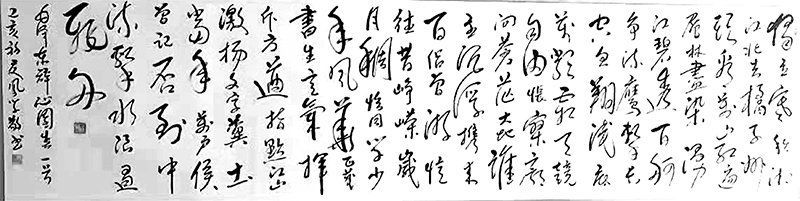 独立寒秋湘
江北去橘子洲
头看万山红遍
层林尽染漫
江碧透百舸
争流鹰击长
空鱼翔浅底
万类霜天竞
自由怅寥廓
问苍茫大地谁
主沉浮携来
百侣曾游忆
往昔峥嵘岁
月稠恰同学少
年风华正茂
书生意气挥
斥方遒指点江
激扬文字粪土
当年万户侯
曾记否到中
流击水浪遏
飛舟
毛泽东词沁园春一首
己亥